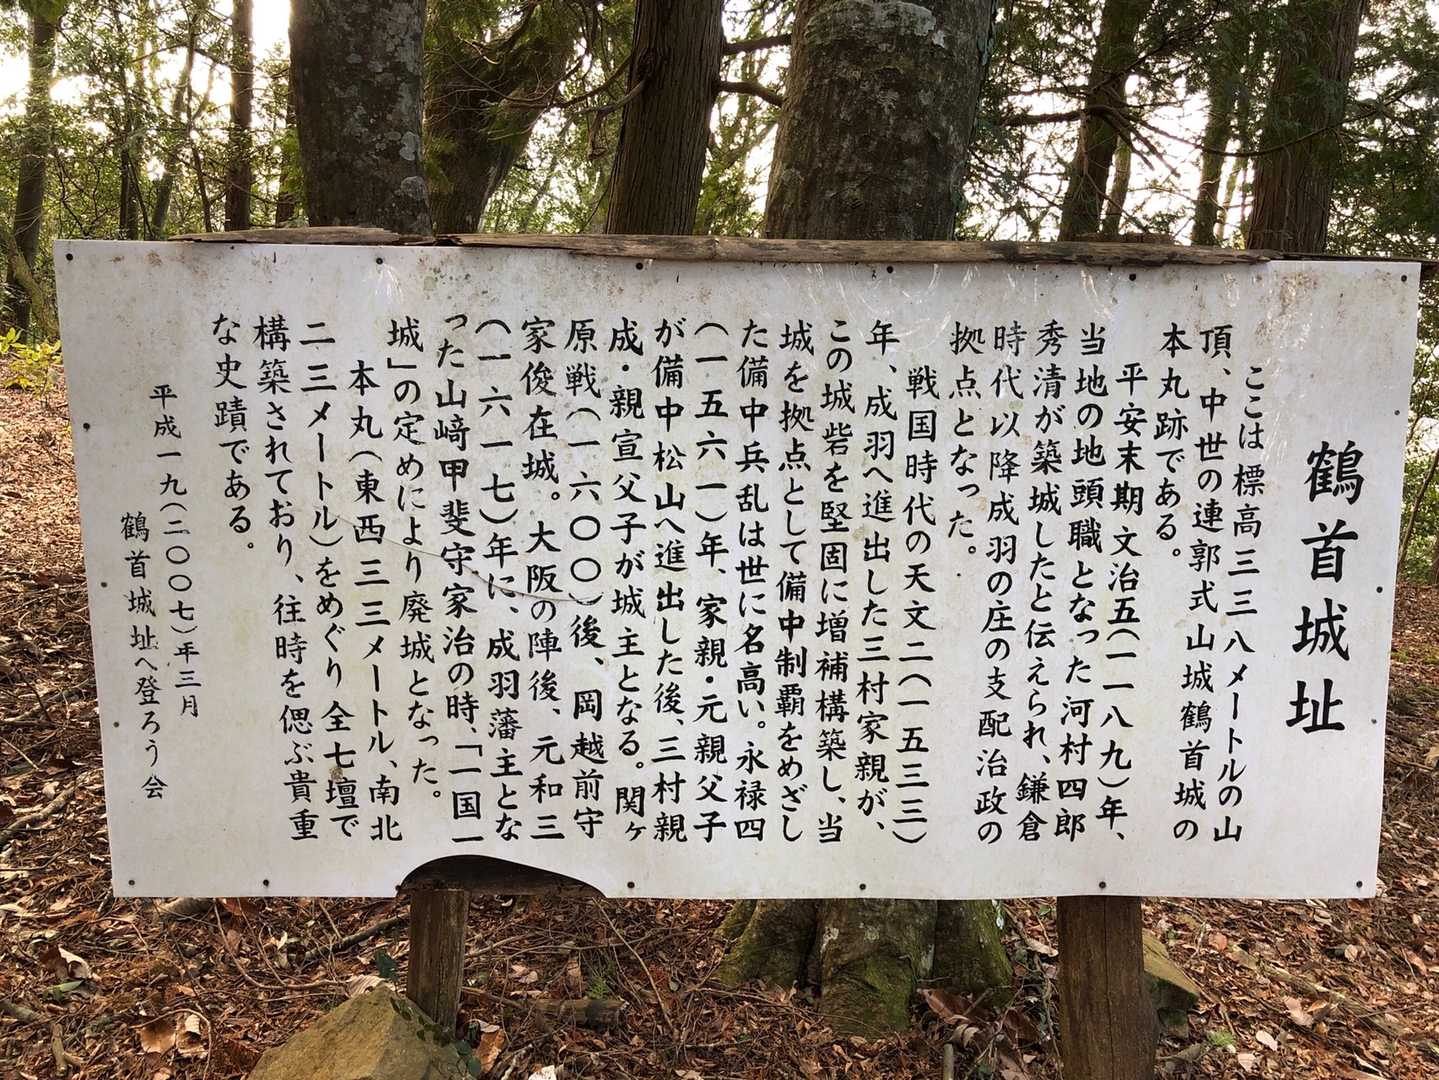 鶴首城址
ここは標高三三八メートルの山
頂、中世の連郭式山城鶴首城の
本丸跡である。
平安末期文治五(一一八九)年、
当地の地頭職となった河村四郎
秀清が築城したと伝えられ、鎌倉
時代以降成羽の庄の支配治政の
拠点となった。
戦国時代の天文二(一五三三)
年、成羽へ進出した三村家親が、
この城砦を堅固に増補構築し、当
城を拠点として備中制覇をめざし
た備中兵乱は世に名高い。永禄四
(一五六一)年、家親・元親父子
が備中松山へ進出した後、三村親
成・親宣父子が城主となる。関ヶ
原戦(一六〇〇)後、岡越前守
家俊在城。大阪の陣後、元和三
(一六一七)年に、成羽藩主とな
った山﨑甲斐守家治の時、「一国一
城」の定めにより廃城となった。
本丸(東西三三メートル、南北
二三メートル)をめぐり全七壇で
構築されており、往時を偲ぶ貴重
な史蹟である。
平成一九(二〇〇七)年三月
鶴首城址へ登ろう会